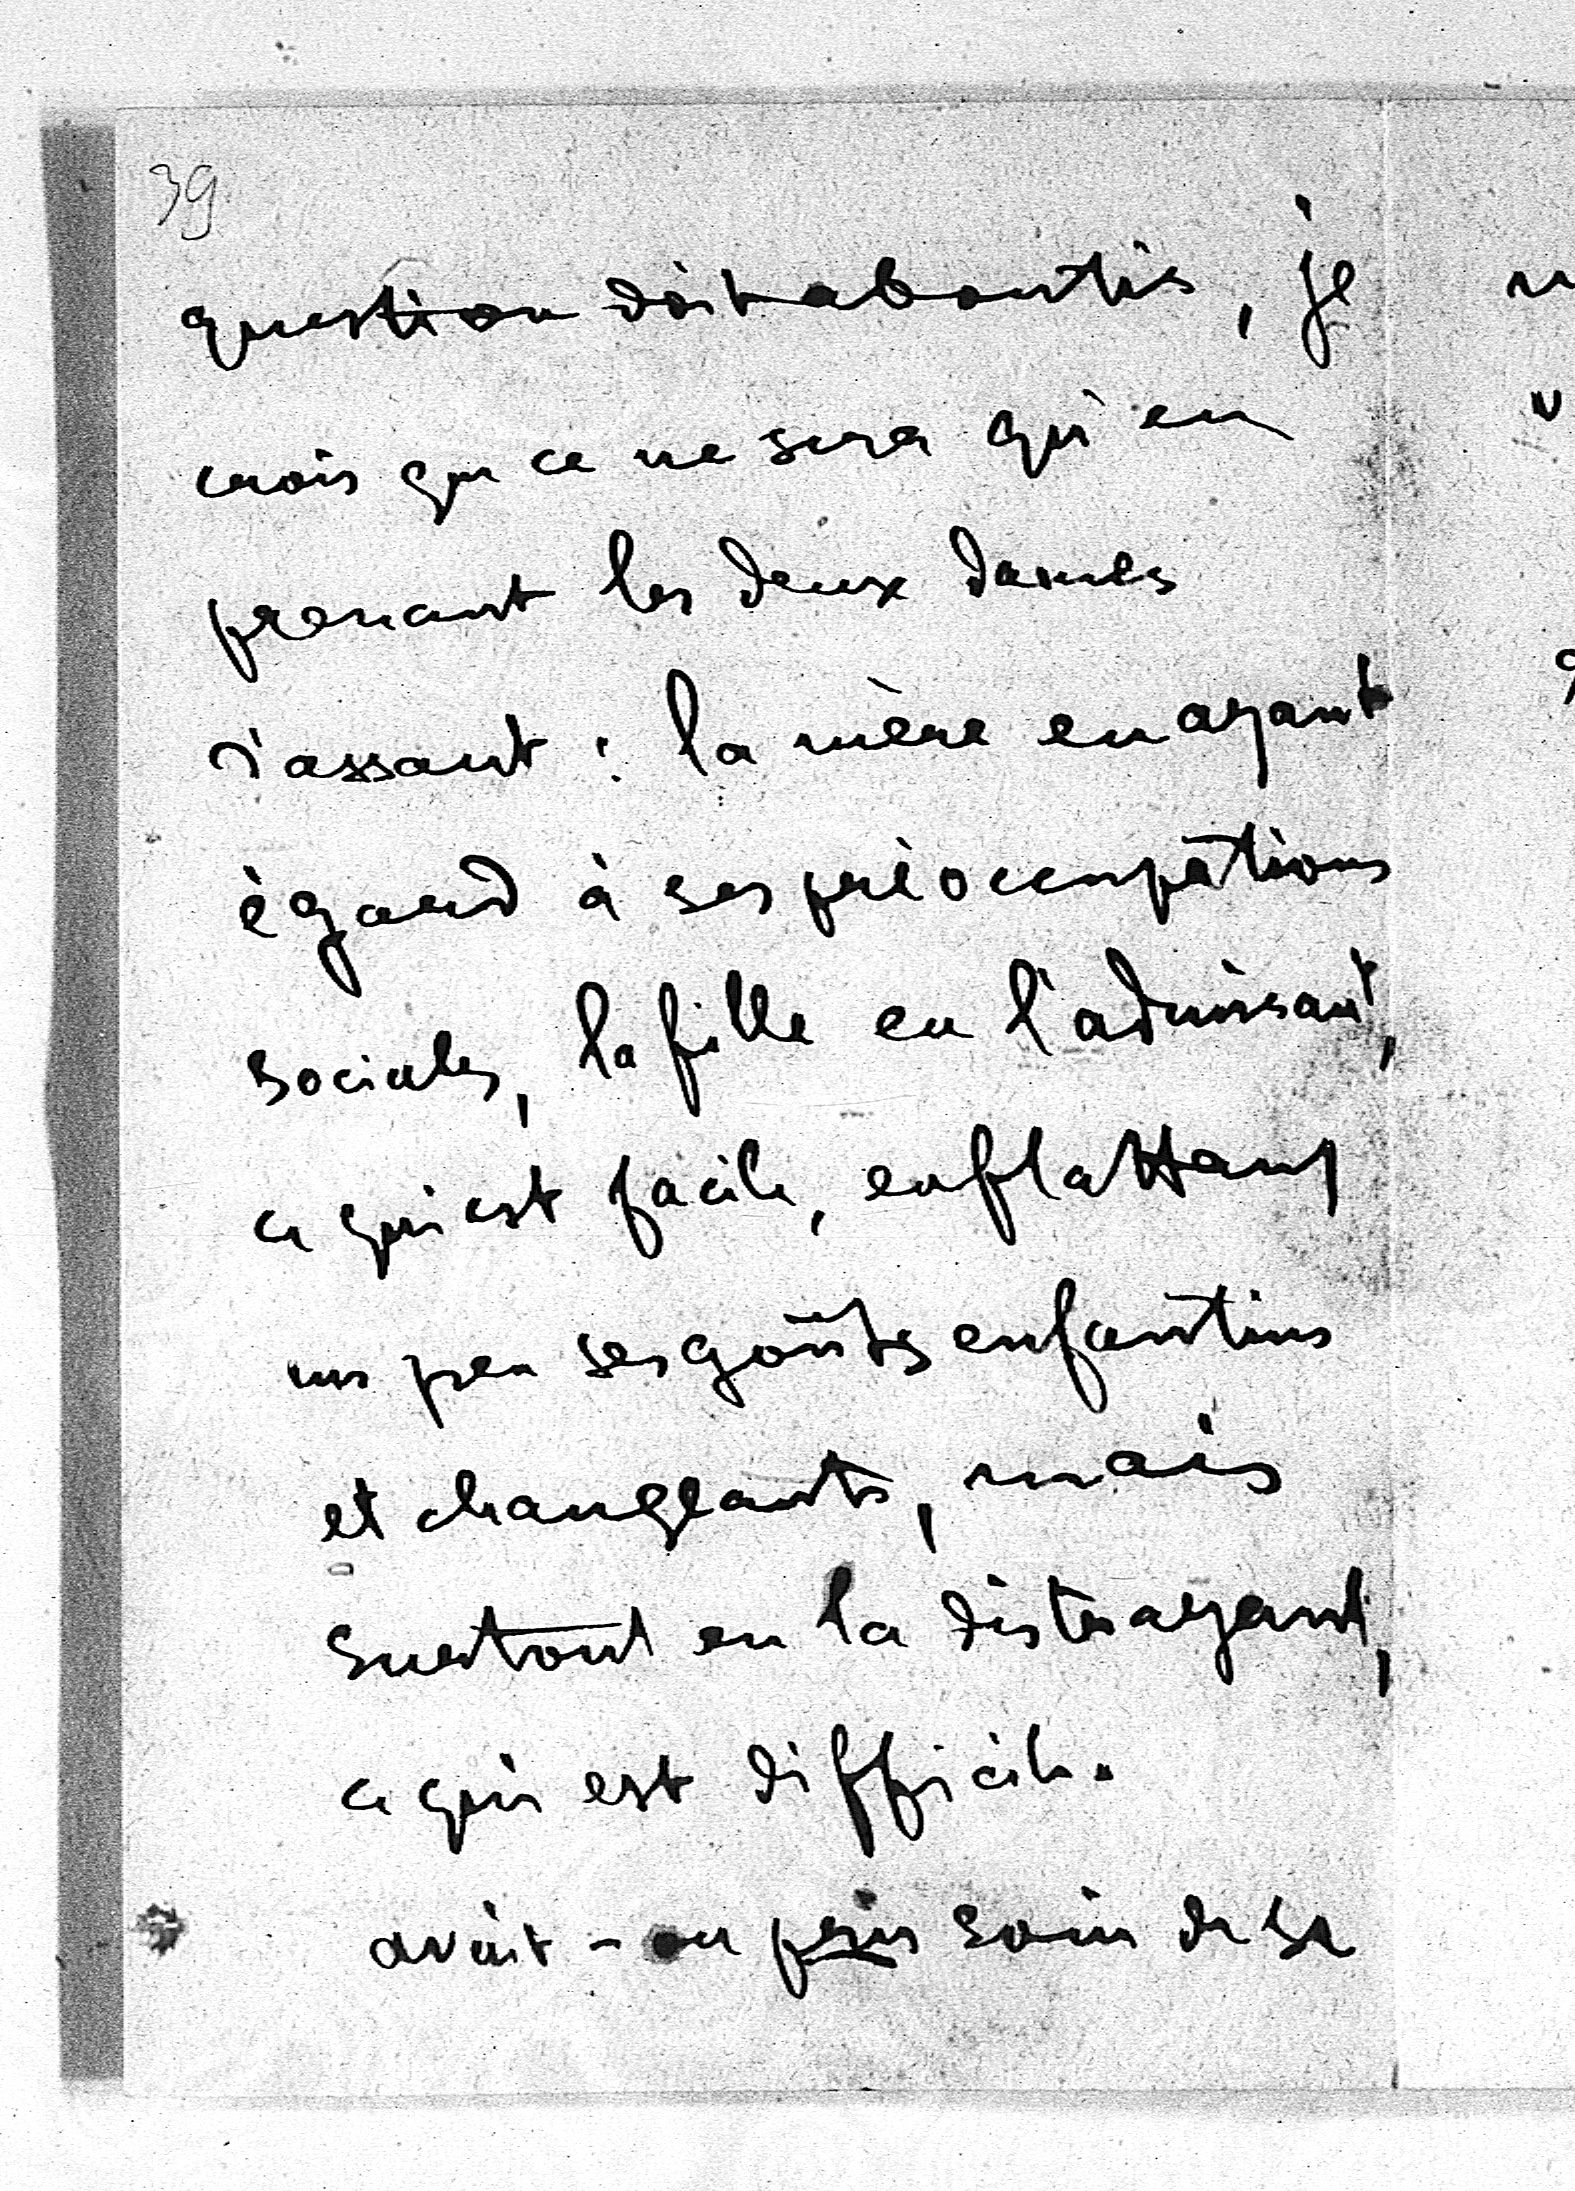 39
question doit aboutir, je
crois que ce ne sera qu'en
prenant les deux dames
d'assaut : la mère en ayant
égard à ses préoccupations
sociales, la fille en l'admirant,
ce qui est facile, en flattant
un peu ses goûts enfantins
et changeants, mais
surtout en la distrayant,
ce qui est difficile.
avait-on pris soin de sa